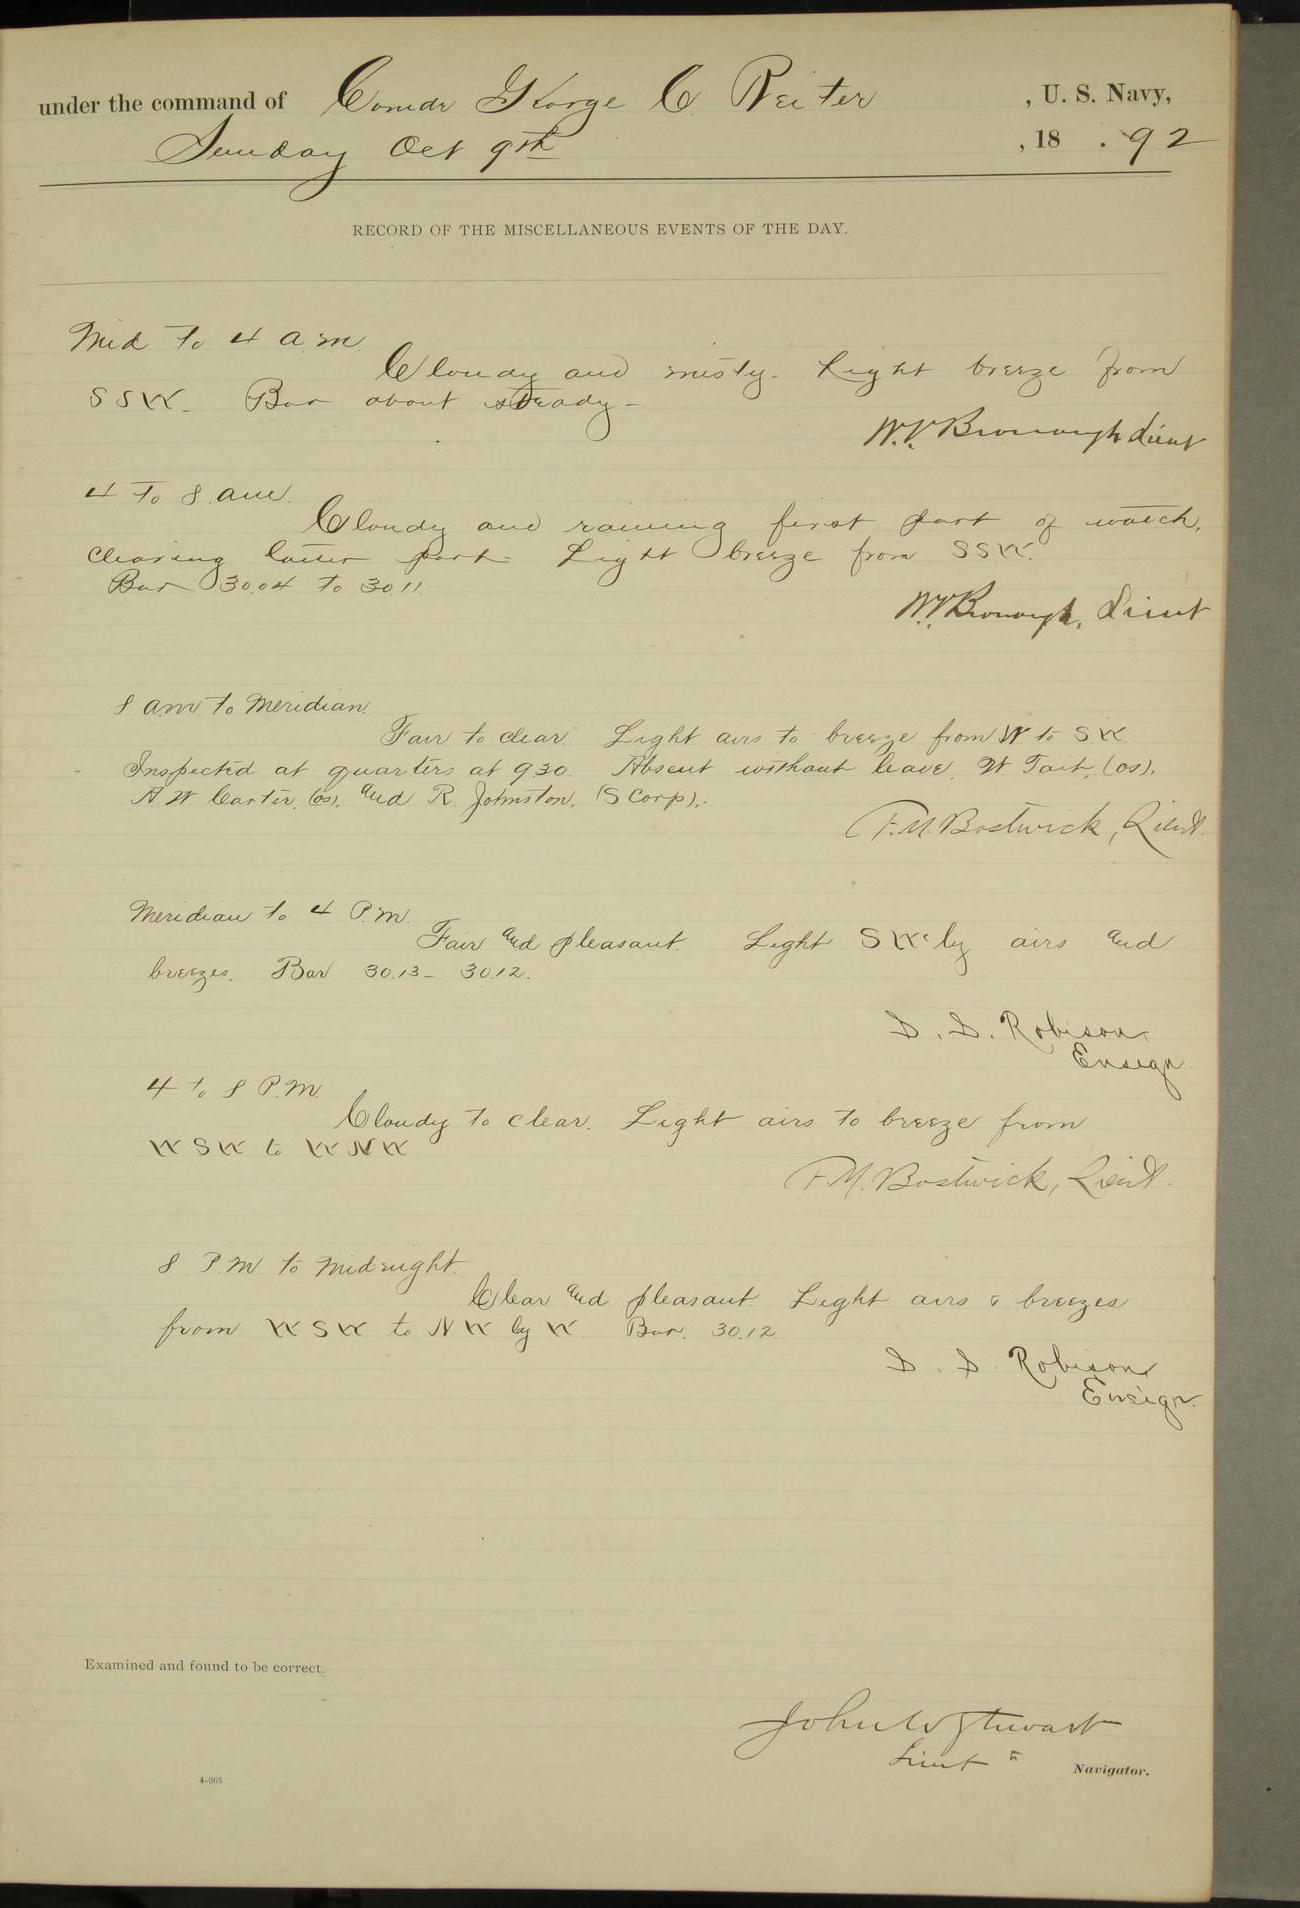 under the command of Comdr George C Reiter , U. S. Navy,
Sunday Oct 9th , 18 . 92
RECORD OF THE MISCELLANEOUS EVENTS OF THE DAY.
Mid to 4 a.m.
Cloudy and misty. Light breeze from
SSW. Bar about steady.
W.V. Bronaugh Lieut
4 to 8 am.
Cloudy and raining first part of watch,
clearing latter part. Light breeze from SSW.
Bar 30.04 to 30.11.
W.V. Bronaugh, Lieut
8 am to Meridian.
Fair to clear. Light airs to breeze from W to S.W.
Inspected at quarters at 9.30. Absent without leave, W Tait, (os),
A W Carter, (os), and R. Johnston, (S Corp).
F.M. Bostwick, Lieut.
Meridian to 4 P.M.
Fair and pleasant. Light SW'ly airs and
breezes. Bar 30.13 - 30.12.
S. S. Robison
Ensign
4 to 8 P.M.
Cloudy to clear. Light airs to breeze from
WSW to WNW
F.M. Bostwick, Lieut.
8 P.M to Midnight.
Clear and pleasant. Light airs & breezes
from WSW to NW by W. Bar. 30.12.
S. S. Robison
Ensign.
Examined and found to be correct.
John W Stewart
Lieut & Navigator.
4-265